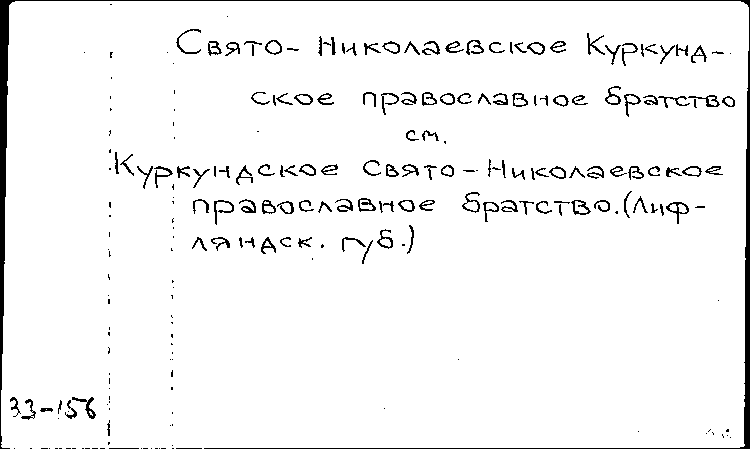 Свято- Николаевское Куркунд-
ское православное братство
см.
Куркундское Свято-Николаевское
православное братство.(Лиф-
ляндск. губ.)
33-156